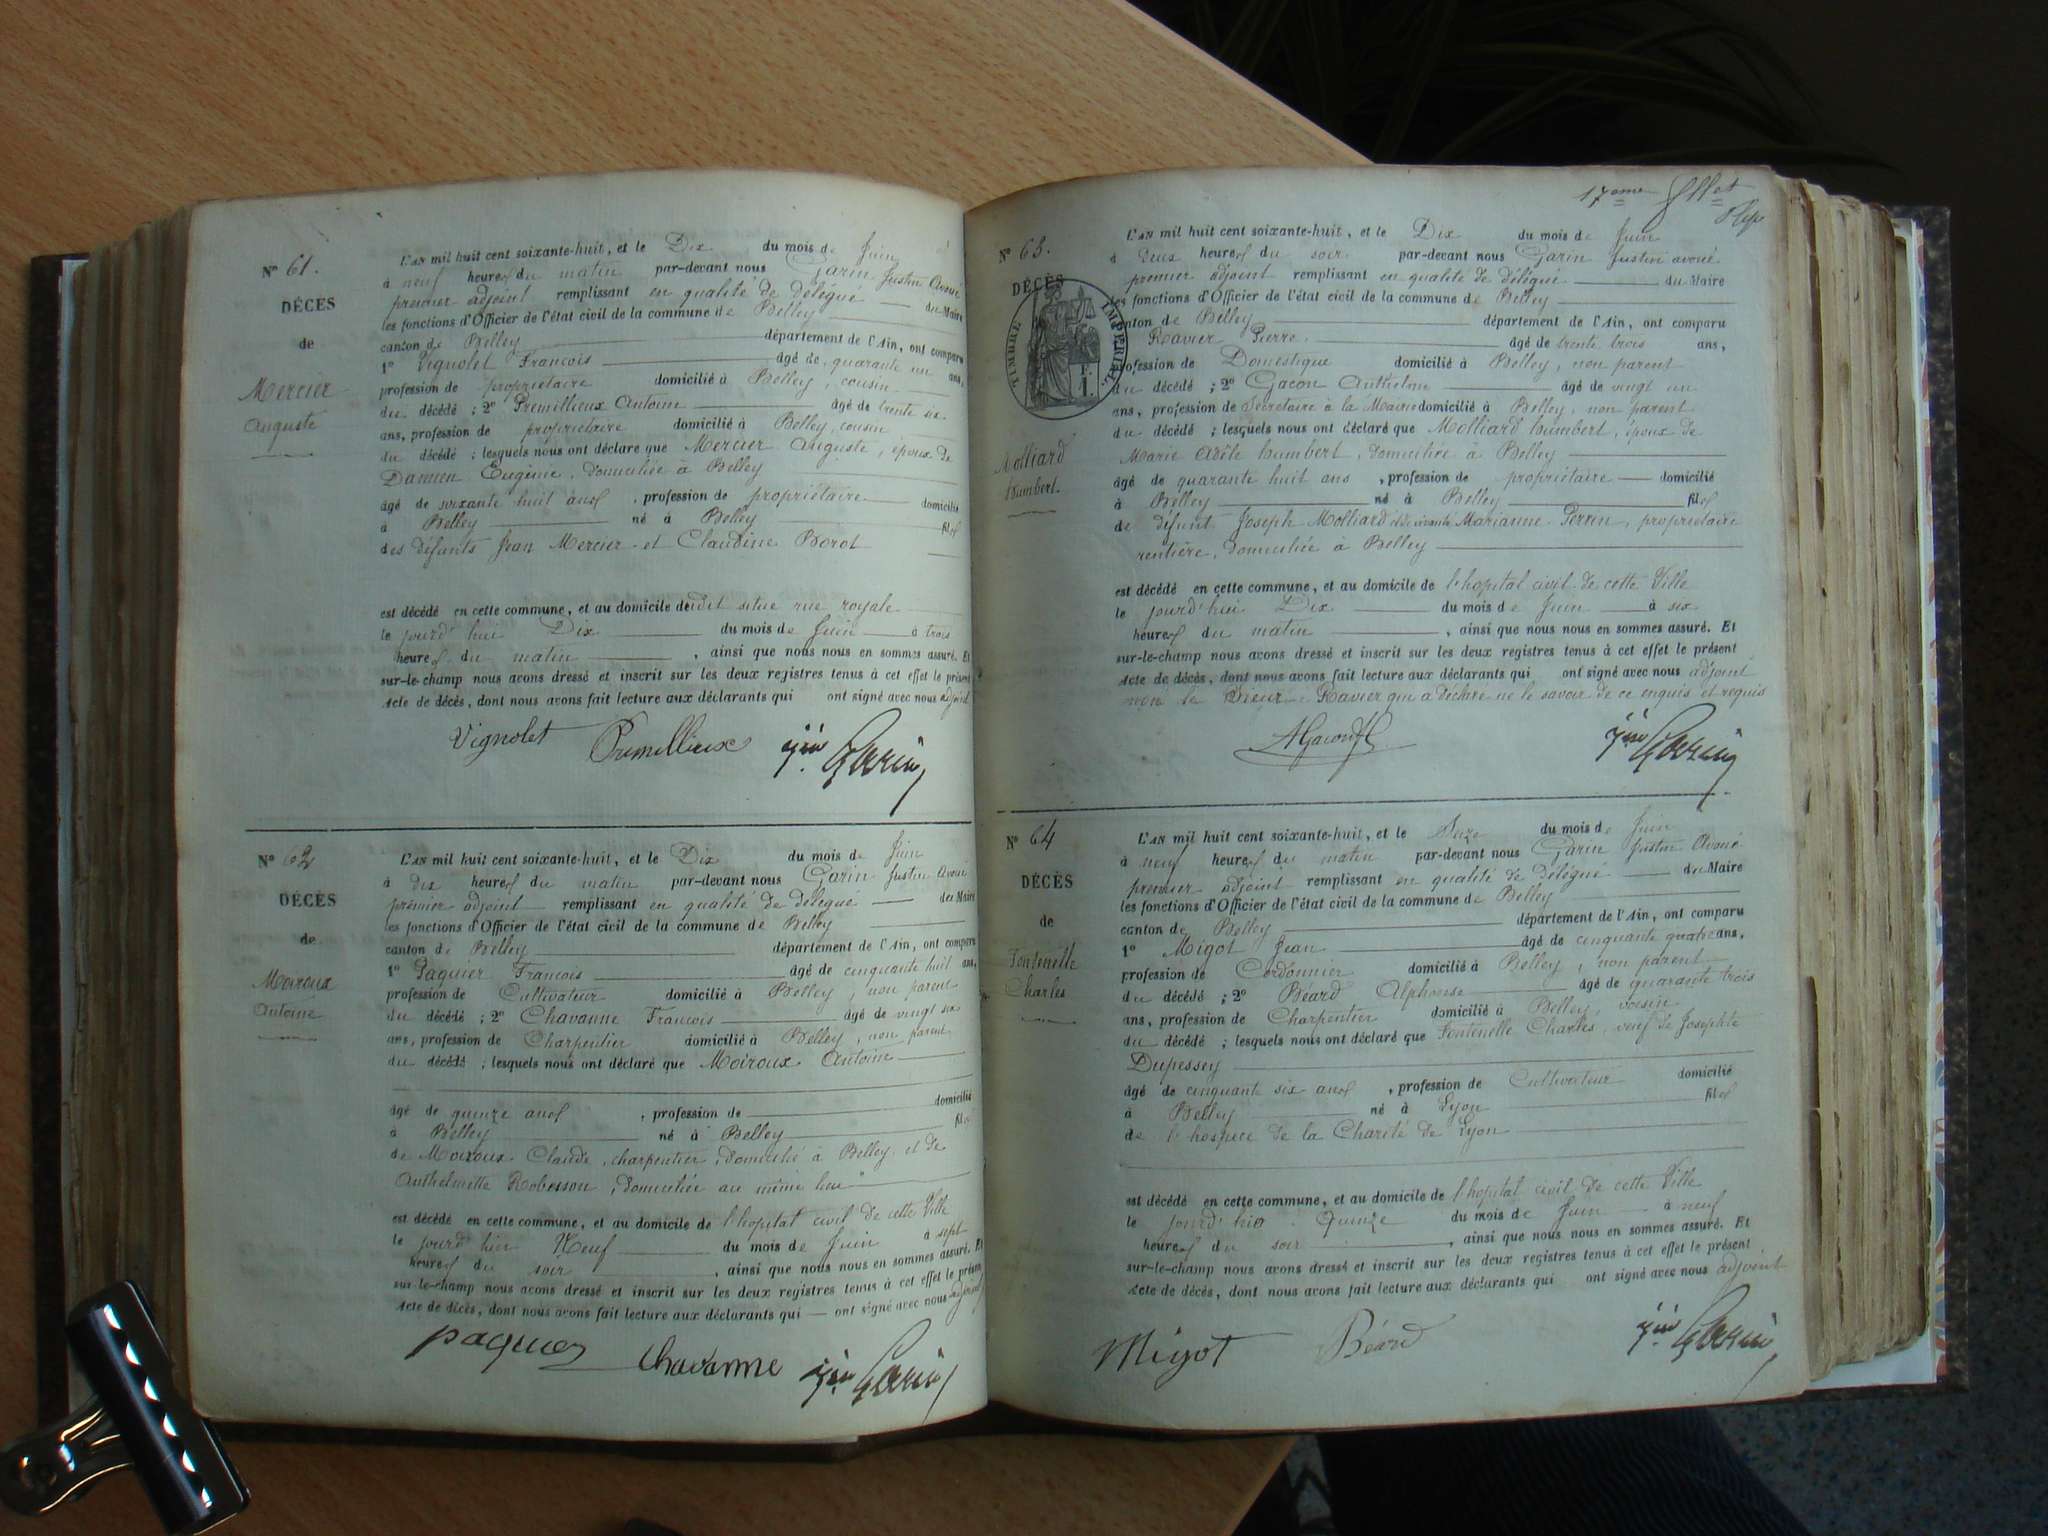 Nº 61.
DÉCÈS
de
Mercier
Auguste
L'AN mil huit cent soixante-huit, et le Dix du mois de Juin
à neuf heures du matin par-devant nous Garin Justin Avoué
premier adjoint remplissant en qualité de délégué du Maire
les fonctions d'Officier de l'état civil de la commune de Belley
canton de Belley département de l'Ain, ont comparu
1º Vignolet François âgé de quarante un ans,
profession de propriétaire domicilié à Belley, cousin
du décédé ; 2º Premillieux Antoine âgé de trente six
ans, profession de propriétaire domicilié à Belley, cousin
du décédé ; lesquels nous ont déclaré que Mercier Auguste, époux de
Damien Eugènie, domiciliée à Belley
âgé de soixante huit ans, profession de propriétaire domicilié
à Belley né à Belley fils
des défunts Jean Mercier et Claudine Borot
est décédé en cette commune, et au domicile dudit situé rue royale
le jourd'hui Dix du mois de Juin à trois
heures du matin, ainsi que nous nous en sommes assuré. Et
sur-le-champ nous avons dressé et inscrit sur les deux registres tenus à cet effet le présent
Acte de décès, dont nous avons fait lecture aux déclarants qui ont signé avec nous adjoint
Vignolet Premillieux Garin
Nº 62
DÉCÈS
de
Moiroux
Antoine
L'AN mil huit cent soixante-huit, et le Dix du mois de Juin
à dix heures du matin par-devant nous Garin Justin Avoué
premier adjoint remplissant en qualité de délégué du Maire
les fonctions d'Officier de l'état civil de la commune de Belley
canton de Belley département de l'Ain, ont comparu
1º Paquier François âgé de cinquante huit ans,
profession de Cultivateur domicilié à Belley, non parent
du décédé ; 2º Chavanne François âgé de vingt six
ans, profession de Charpentier domicilié à Belley, non parent
du décédé ; lesquels nous ont déclaré que Moiroux Antoine
âgé de quinze ans, profession de domicilié
à Belley né à Belley fils
de Moiroux Claude, charpentier, domicilié à Belley et de
Anthelmette Robesson, domiciliée au même lieu
est décédé en cette commune, et au domicile de l'hopital civil de cette Ville
le jourd'hier Neuf du mois de Juin à sept
heures du soir, ainsi que nous nous en sommes assuré. Et
sur-le-champ nous avons dressé et inscrit sur les deux registres tenus à cet effet le présent
Acte de décès, dont nous avons fait lecture aux déclarants qui ont signé avec nous adjoint
paquier Chavanne Garin
17eme
Nº 63.
DÉCÈS
TIMBRE IMPÉRIAL
F.
1.
Molliard
humbert.
L'AN mil huit cent soixante-huit, et le Dix du mois de Juin
à deux heures du soir par-devant nous Garin Justin avoué
premier adjoint remplissant en qualité de délégué du Maire
les fonctions d'Officier de l'état civil de la commune de Belley
canton de Belley département de l'Ain, ont comparu
Ravier Pierre âgé de trente trois ans,
profession de Domestique domicilié à Belley, non parent
du décédé ; 2º Gacon Anthelme âgé de vingt un
ans, profession de Secretaire à la Mairie domicilié à Belley, non parent
du décédé ; lesquels nous ont déclaré que Molliard humbert, époux de
Marie humbert, domiciliée à Belley
âgé de quarante huit ans, profession de propriétaire domicilié
à Belley né à Belley fils
de défunt Joseph Molliard Marianne Perrin, propriétaire
rentière, domiciliée à Belley
est décédé en cette commune, et au domicile de l'hopital civil de cette Ville
le jourd'hui Dix du mois de Juin à six
heures du matin, ainsi que nous nous en sommes assuré. Et
sur-le-champ nous avons dressé et inscrit sur les deux registres tenus à cet effet le présent
Acte de décès, dont nous avons fait lecture aux déclarants qui ont signé avec nous adjoint
non le Sieur Ravier qui a déclaré ne le savoir de ce enquis et requis
AGacon Garin
Nº 64
DÉCÈS
de
Fontenelle
Charles
L'AN mil huit cent soixante-huit, et le Seize du mois de Juin
à neuf heures du matin par-devant nous Garin Justin Avoué
premier adjoint remplissant en qualité de délégué du Maire
les fonctions d'Officier de l'état civil de la commune de Belley
canton de Belley département de l'Ain, ont comparu
1º Migot Jean âgé de cinquante quatre ans,
profession de Cordonnier domicilié à Belley, non parent
du décédé ; 2º Béard Alphonse âgé de quarante trois
ans, profession de Charpentier domicilié à Belley, voisin
du décédé ; lesquels nous ont déclaré que Fontenelle Charles, veuf de Josephte
Dupessey
âgé de cinquante six ans, profession de Cultivateur domicilié
à Belley né à Lyon fils
de l'hospice de la Charité de Lyon
est décédé en cette commune, et au domicile de l'hopital civil de cette Ville
le jourd'hier Quinze du mois de Juin à neuf
heures du soir, ainsi que nous nous en sommes assuré. Et
sur-le-champ nous avons dressé et inscrit sur les deux registres tenus à cet effet le présent
Acte de décès, dont nous avons fait lecture aux déclarants qui ont signé avec nous adjoint
Migot Béard Garin